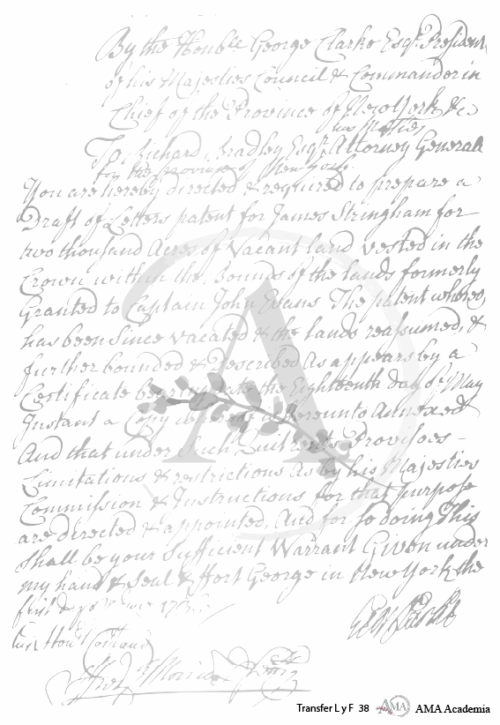 By the Honble George Clarke Esqr. President
of his Majesties Council & Commander in
Chief of the Province of New York &c
To Richard Bradley Esqr. his Matties Attorney Generall
for the Province of New York.
You are hereby directed & required to prepare a
Draft of Letters patent for James Stringham for
two thousand Acres of Vacant land Vested in the
Crown within the Bounds of the lands formerly
Granted to Captain John Evans The patent whereof
has been Since vacated & the lands reassumed, &
further bounded & Described As appears by a
Certificate the Eighteenth day of May
Instant a Copy hereunto Annexed
And that under Such Quitrents Provisoes
Limitations & restrictions As by his Majesties
Commission & Instructions for that purpose
are directed & appointed. And for So doing This
Shall be your Sufficient Warrant Given under
my hand & Seal & Fort George in New York the
Geo Clarke
Transfer L y F 38 AMA AMA Academia
A